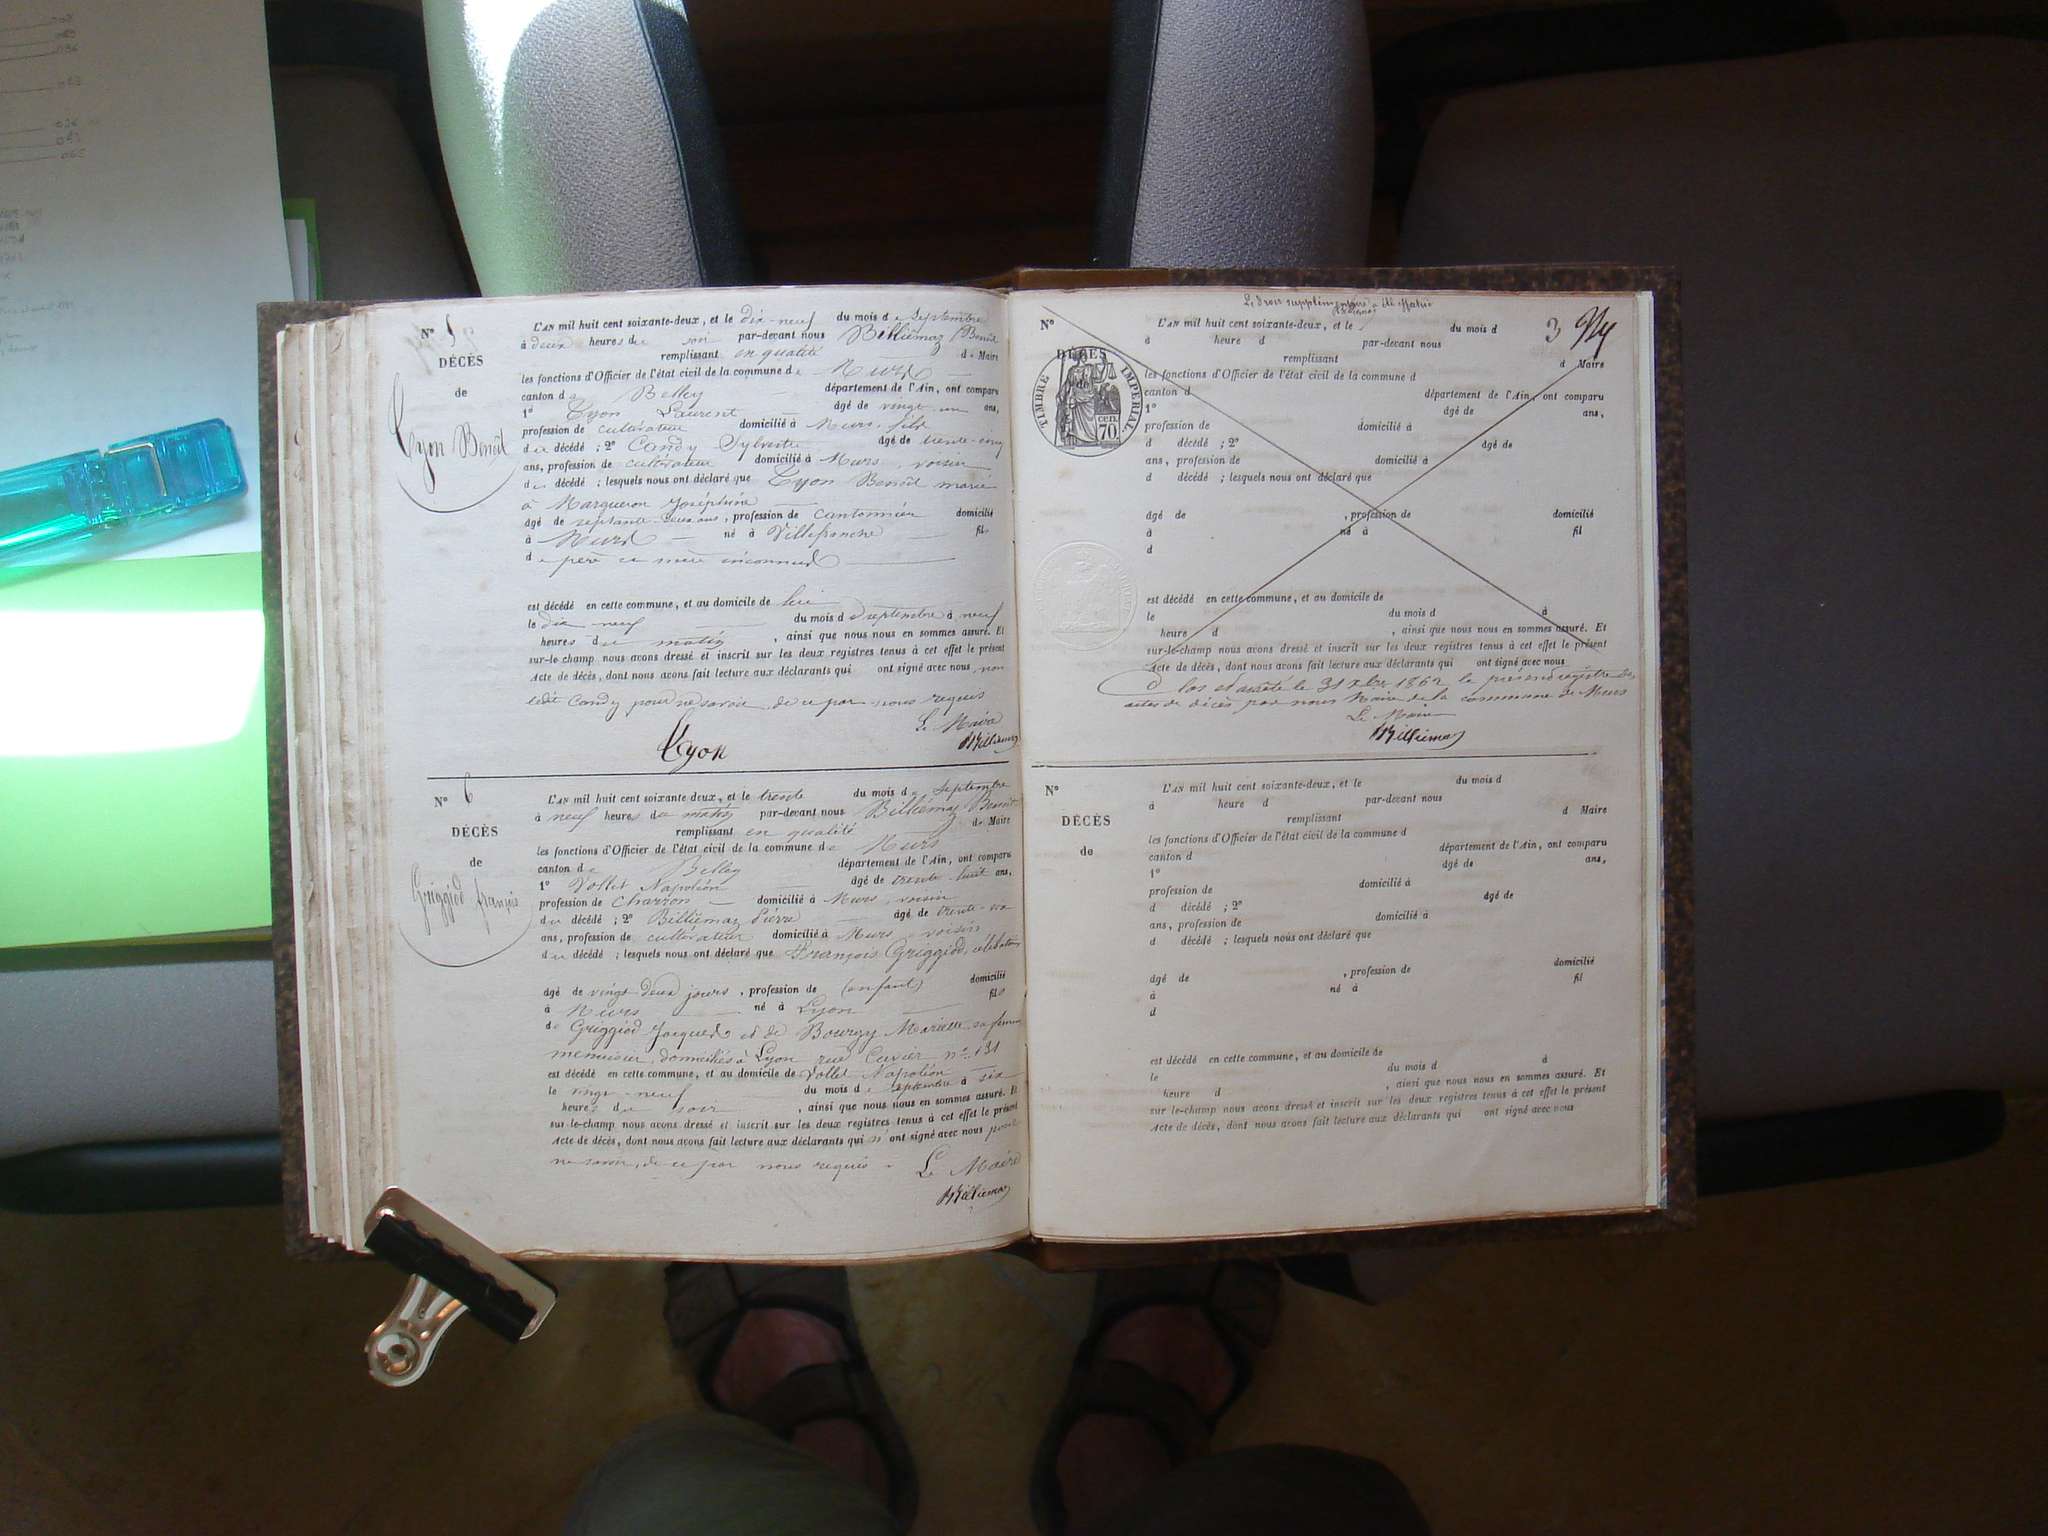 N° 5
DÉCÈS
de
Tyon Benoît
L'AN mil huit cent soixante-deux, et le dix-neuf du mois de Septembre
à deux heures du soir par-devant nous Billiémaz Benoît
remplissant en qualité de Maire
les fonctions d'Officier de l'état civil de la commune de Murs
canton de Belley département de l'Ain, ont comparu
1° Tyon Laurent âgé de vingt un ans,
profession de cultivateur domicilié à Murs, fils
du décédé ; 2° Candy Sylvestre âgé de trente-cinq
ans, profession de cultivateur domicilié à Murs, voisin
du décédé ; lesquels nous ont déclaré que Tyon Benoît marié
à Margueron Joséphine
âgé de septante-deux ans, profession de cantonnier domicilié
à Murs né à Villefranche fils
de père et mère inconnus
est décédé en cette commune, et au domicile de lui
le dix neuf du mois de septembre à neuf
heures du matin, ainsi que nous nous en sommes assuré. Et
sur-le champ nous avons dressé et inscrit sur les deux registres tenus à cet effet le présent
Acte de décès, dont nous avons fait lecture aux déclarants qui ont signé avec nous, non
ledit Candy pour ne savoir, de ce par nous requis
Le Maire
Billiémaz
Tyon
N° 6
DÉCÈS
de
Griggiod françois
L'AN mil huit cent soixante deux, et le trente du mois de Septembre
à neuf heures du matin par-devant nous Billiémaz Benoît
remplissant en qualité de Maire
les fonctions d'Officier de l'état civil de la commune de Murs
canton de Belley département de l'Ain, ont comparu
1° Vollet Napoléon âgé de trente-huit ans,
profession de Charron domicilié à Murs, voisin
du décédé ; 2° Billiémaz Pierre âgé de trente-
ans, profession de cultivateur domicilié à Murs, voisin
du décédé ; lesquels nous ont déclaré que François Griggiod, célibataire
âgé de vingt-deux jours, profession de (enfant) domicilié
à Murs né à Lyon fils
de Griggiod Jacques et de Bourgy Mariette, sa femme
menuisier, domiciliés à Lyon rue Cuvier n° 131
est décédé en cette commune, et au domicile de Vollet Napoléon
le vingt-neuf du mois de septembre à six
heures du soir, ainsi que nous nous en sommes assuré. Et
sur-le-champ nous avons dressé et inscrit sur les deux registres tenus à cet effet le présent
Acte de décès, dont nous avons fait lecture aux déclarants qui n'ont signé avec nous pour
ne savoir, de ce par nous requis.
Le Maire
Billiémaz
Le droit supplémentaire a été
3
N°
DÉCÈS
de
TIMBRE IMPÉRIAL
70 cen.
L'AN mil huit cent soixante-deux, et le du mois d
à heure d par-devant nous
remplissant d Maire
les fonctions d'Officier de l'état civil de la commune d
canton d département de l'Ain, ont comparu
1° âgé de ans,
profession de domicilié à
d décédé ; 2° âgé de
ans, profession de domicilié à
d décédé ; lesquels nous ont déclaré que
âgé de , profession de domicilié
à né à fil
d
est décédé en cette commune, et au domicile de
le du mois d à
heure d , ainsi que nous nous en sommes assuré. Et
sur-le-champ nous avons dressé et inscrit sur les deux registres tenus à cet effet le présent
Acte de décès, dont nous avons fait lecture aux déclarants qui ont signé avec nous
Clos et arrêté le 31 Xbre 1862 le présent registre des
actes de décès par nous Maire de la commune de Murs
Le Maire
Billiémaz
N°
DÉCÈS
de
L'AN mil huit cent soixante-deux, et le du mois d
à heure d par-devant nous
remplissant d Maire
les fonctions d'Officier de l'état civil de la commune d
canton d département de l'Ain, ont comparu
1° âgé de ans,
profession de domicilié à
d décédé ; 2° âgé de
ans, profession de domicilié à
d décédé ; lesquels nous ont déclaré que
âgé de , profession de domicilié
à né à fil
d
est décédé en cette commune, et au domicile de
le du mois d à
heure d , ainsi que nous nous en sommes assuré. Et
sur le-champ nous avons dressé et inscrit sur les deux registres tenus à cet effet le présent
Acte de décès, dont nous avons fait lecture aux déclarants qui ont signé avec nous